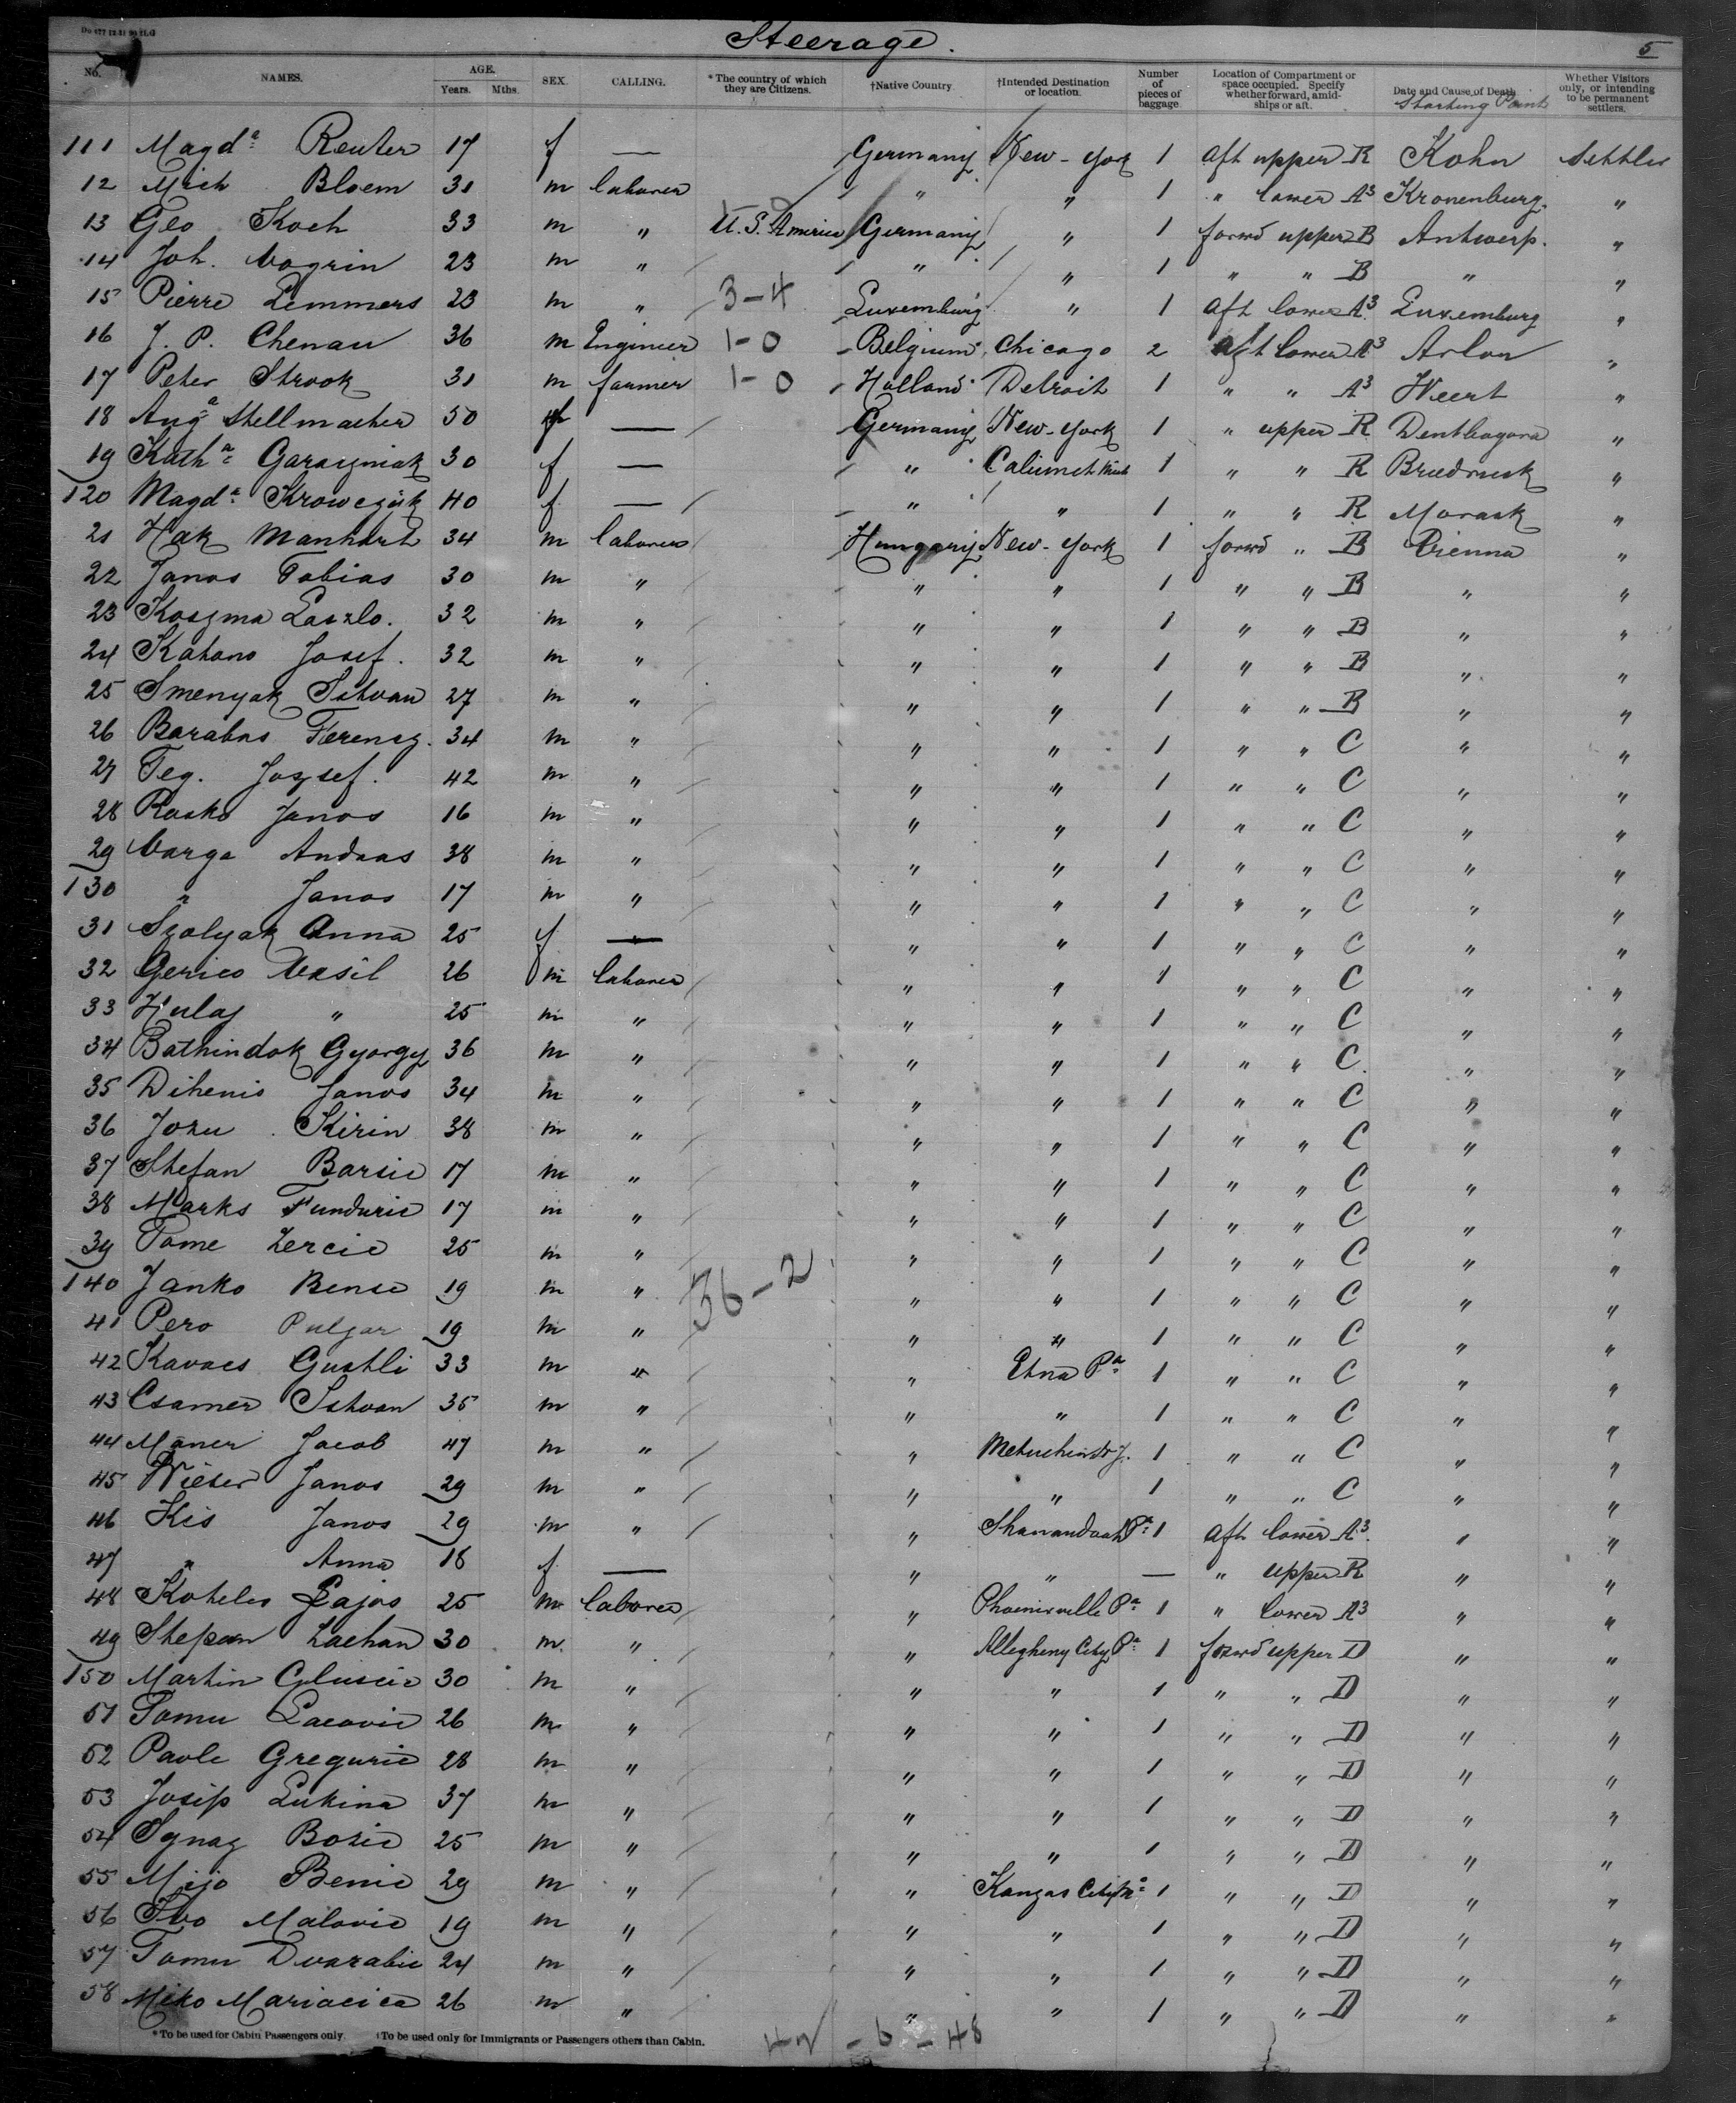 Steerage. 5
No. NAMES. AGE. Years. Mths. SEX. CALLING. *The country of which they are Citizens. †Native Country †Intended Destination or location. Number of pieces of baggage Location of Compartment or space occupied. Specify whether forward, amidships or aft. Date and Cause of Death Starting Point Whether Visitors only, or intending to be permanent settlers.
111 Magdª Reuter 17 f — Germany New-York 1 aft upper R Kohn Settler
12 Mich Bloem 31 m laborer " " 1 " lower A3 Kronenburg. "
13 Geo Koch 33 m " U.S. America Germany " 1 forwd upper B Antwerp. "
14 Joh. Vogrin 23 m " " " 1 " " B " "
15 Pierre Lemmers 23 m " 3-4 Luxemburg " 1 aft lower A3 Luxemburg "
16 J. P. Chenau 36 m Engineer 1-0 Belgium Chicago 2 aft lower A3 Arlon "
17 Peter Strook 31 m farmer 1-0 Holland Detroit 1 " " A3 Weert "
18 Augª Stellmacher 50 f — Germany New-York 1 " upper R "
19 Kathª Garazniak 30 f — " Calumet Mich 1 " " R "
120 Magdª Krowczik 40 f — " " 1 " " R Morask "
21 Hak Manhart 34 m laborer Hungary New-York 1 forwd " B Vienna "
22 Janos Tobias 30 m " " " 1 " " B " "
23 Koszma Laszlo. 32 m " " " 1 " " B " "
24 Katona Josef. 32 m " " " 1 " " B " "
25 Smenyak Istvan 27 m " " " 1 " " B " "
26 Barabas Ferencz. 34 m " " " 1 " " C " "
27 Teg. Jozsef. 42 m " " " 1 " " C " "
28 Rasko Janos 16 m " " " 1 " " C " "
29 Varga Andras 38 m " " " 1 " " C " "
130 " Janos 17 m " " " 1 " " C " "
31 Szolyak Anna 25 f — " " 1 " " C " "
32 Gerico Vasil 26 m laborer " " 1 " " C " "
33 Hulaj " 25 m " " " 1 " " C " "
34 Bathindok Gyorgy 36 m " " " 1 " " C. " "
35 Dihenis Janos 34 m " " " 1 " " C " "
36 Jozu Kirin 38 m " " " 1 " " C " "
37 Stefan Barsic 17 m " " " 1 " " C " "
38 Marks Funduric 17 m " " " 1 " " C " "
39 Tome Zercic 25 m " " " 1 " " C " "
140 Janko Bense 19 m " 36-2 " " 1 " " C " "
41 Pero Pulgar 19 m " " " 1 " " C " "
42 Kavacs Gusthi 33 m " " Etna Pª 1 " " C " "
43 Csamer Istvan 35 m " " " 1 " " C " "
44 Maner Jacob 47 m " " Metuchin N J. 1 " " C " "
45 Wieser Janos 29 m " " " 1 " " C " "
46 Kis Janos 29 m " " Shanandoah Pª 1 aft lower A3 " "
47 " Anna 18 f — " " — " upper R " "
48 Koteles Lajos 25 m laborer " Phoenixville Pª 1 " lower A3 " "
49 Stepan Lachan 30 m " " Allegheny City Pª 1 forwd upper D " "
150 Martin 30 m " " " 1 " " D " "
51 Tomu Lacovic 26 m " " " 1 " " D " "
52 Pavle Greguric 28 m " " " 1 " " D " "
53 Josip Lukina 37 m " " " 1 " " D " "
54 Ignaz Bozic 25 m " " " 1 " " D " "
55 Mijo Benic 29 m " " Kanzas City 1 " " D " "
56 Ivo Malovic 19 m " " " 1 " " D " "
57 Tomu Dvorabic 24 m " " " 1 " " D " "
58 Miko Mariacica 26 m " " " 1 " " D " "
*To be used for Cabin Passengers only. †To be used only for Immigrants or Passengers others than Cabin.
42-6-48